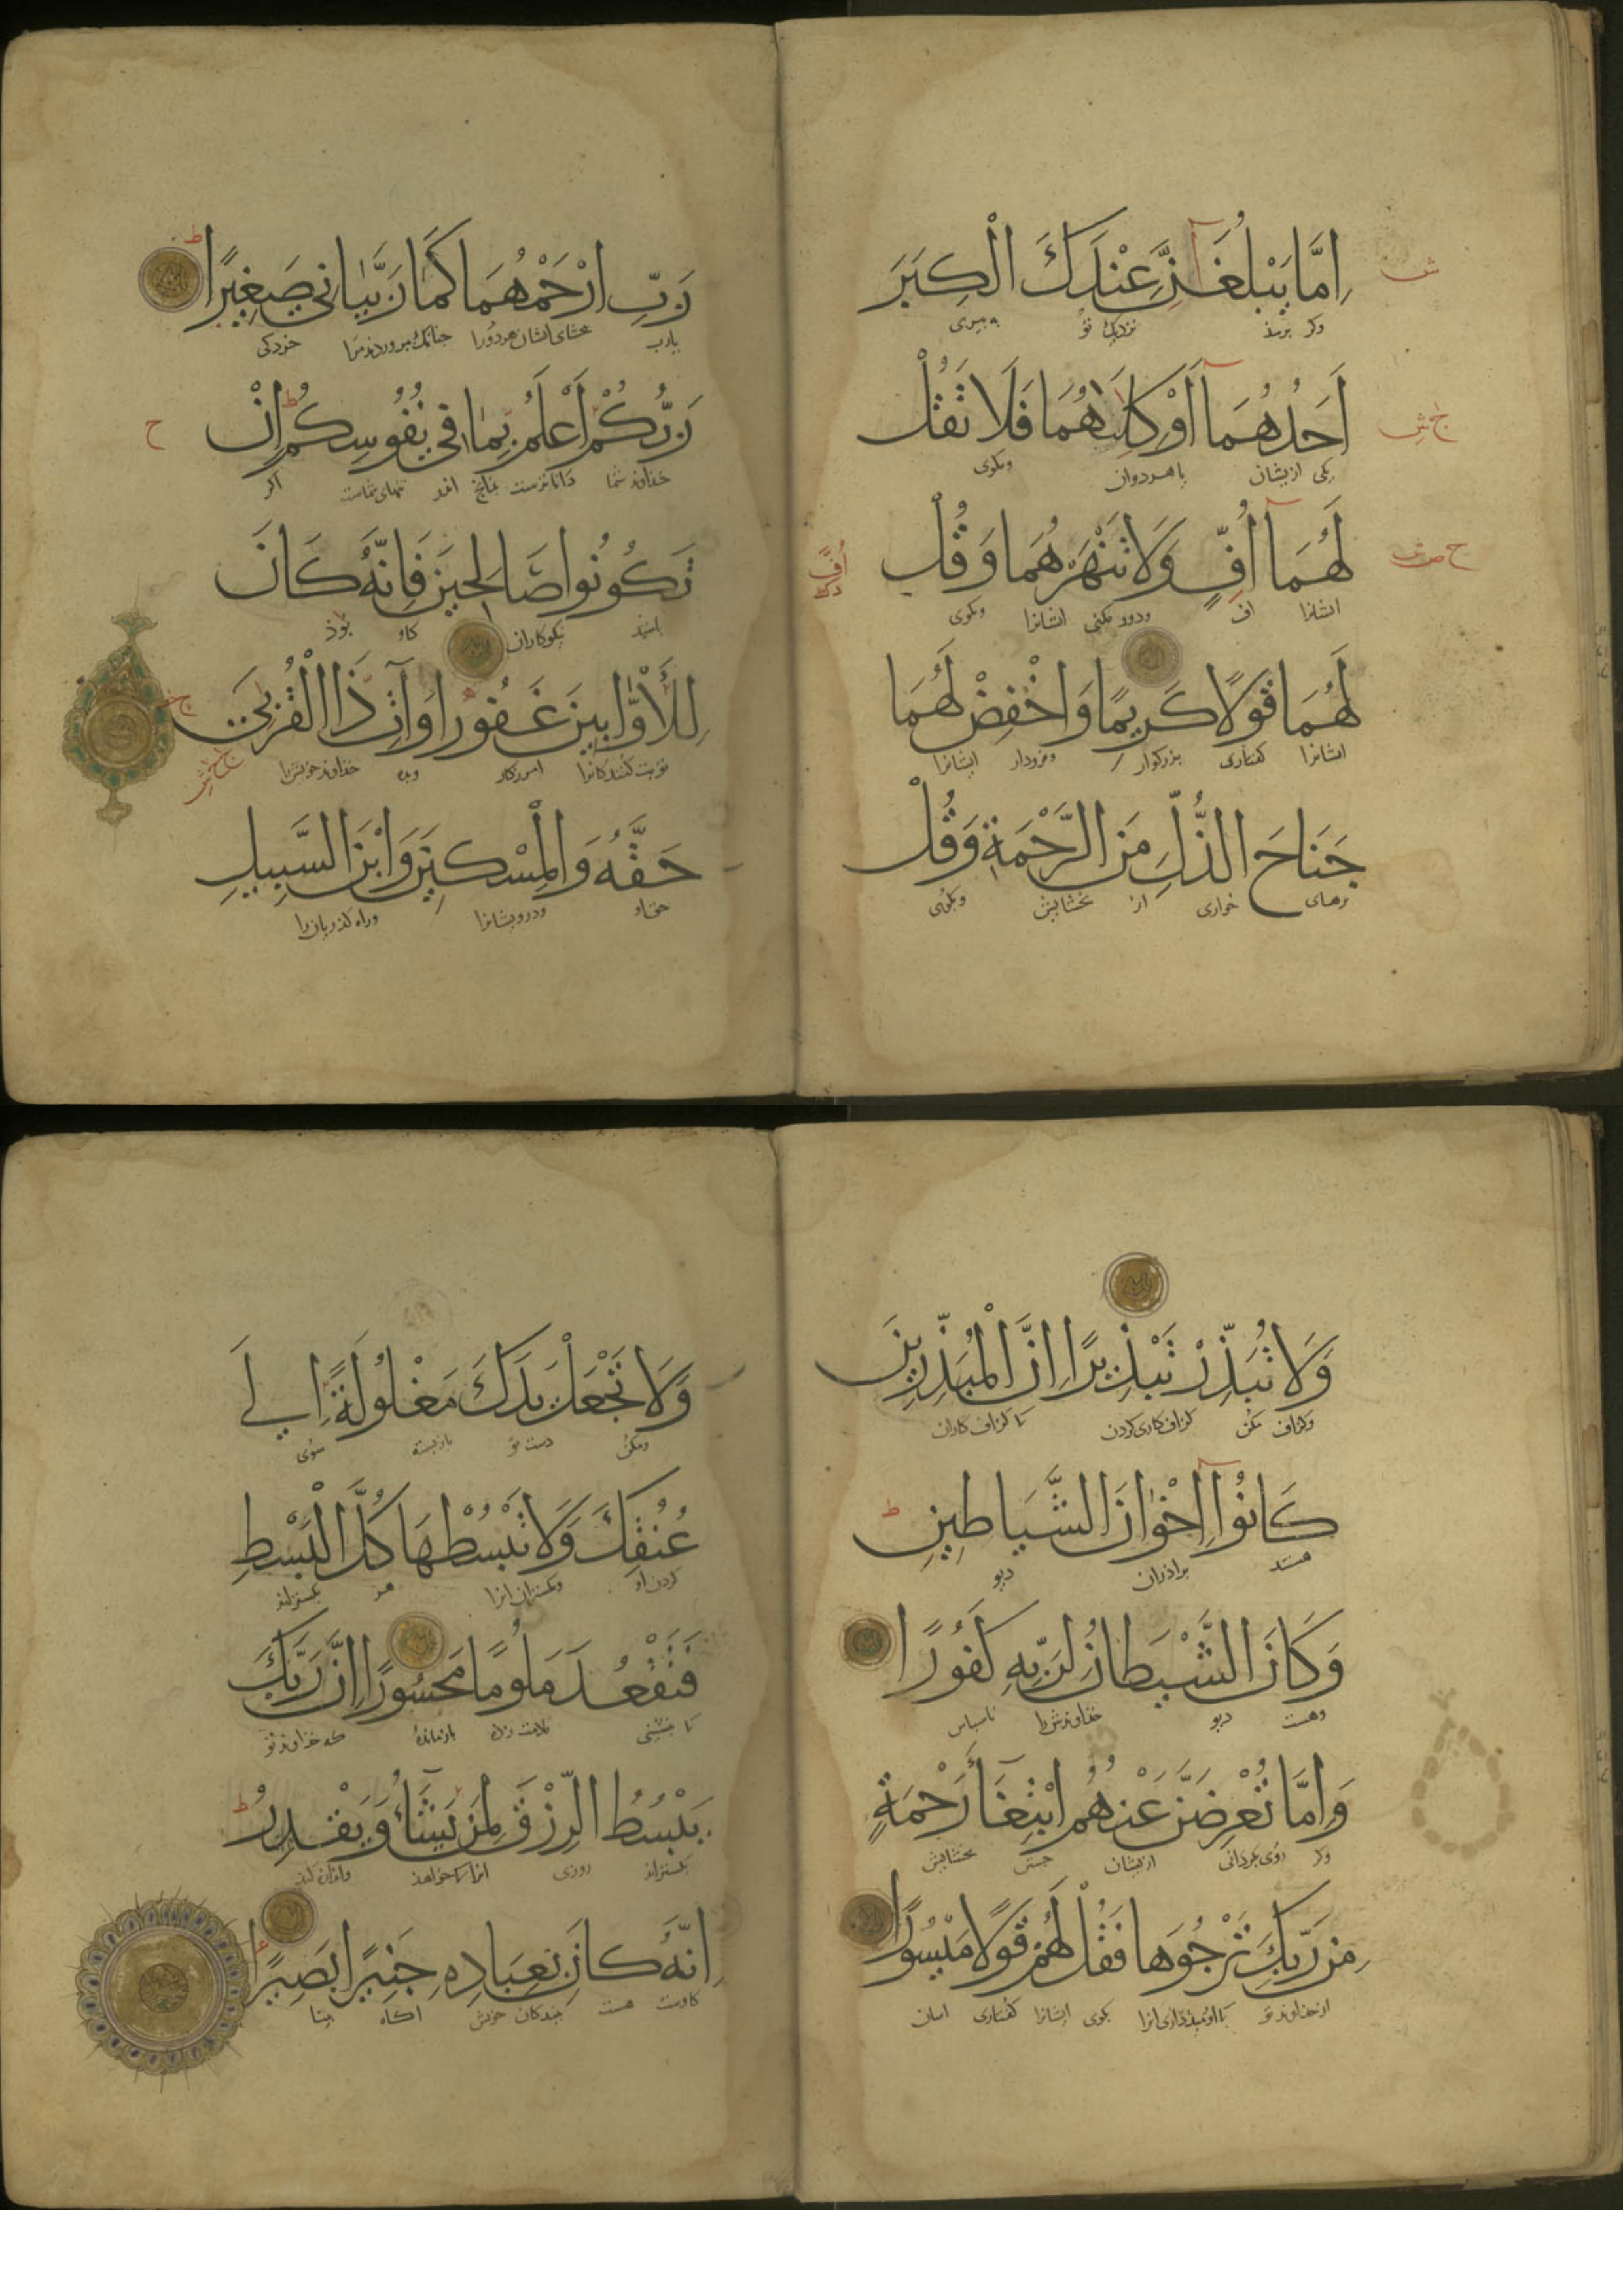 اِمَّا يَبْلُغَنَّ عِنْدَكَ الْكِبَرَ
وكر برسذ نزديك تو به پيرى
اَحَدُهُمَآ اَوْ كِلٰهُمَا فَلَا تَقُلْ
يكى ازيشان يا هردوان ومكوى
لَهُمَآ اُفٍّ وَلَا تَنْهَرْهُمَا وَقُلْ
ايشانرا اف ايشانرا وبكوى
لَهُمَا قَوْلًا كَرِيمًا وَاخْفِضْ لَهُمَا
ايشانرا كفتارى بزركوار وفرودار ايشانرا
جَنَاحَ الذُّلِّ مِنَ الرَّحْمَةِ وَقُلْ
برهاى خوارى از بخشايش وبكوى
رَبِّ ارْحَمْهُمَا كَمَا رَبَّيَانِي صَغِيرًا
يارب ببخشاى ايشان هردورا جنانك بپروردند مرا خردكى
رَبُّكُمْ اَعْلَمُ بِمَا فِي نُفُوسِكُمْ اِنْ
خذاوند شما داناترست بذانچ اندر تنهاى شماست اكر
تَكُونُوا صَالِحِينَ فَاِنَّهُ كَانَ
باشيذ نيكوكاران كاو بوذ
لِلْاَوَّابِينَ غَفُورًا وَآتِ ذَا الْقُرْبَى
توبت كنندكانرا امرزكار وبده خذاوند خويش را
حَقَّهُ وَالْمِسْكِينَ وَابْنَ السَّبِيلِ
حق او ودرويشانرا وراه كذريان را
وَلَا تُبَذِّرْ تَبْذِيرًا اِنَّ الْمُبَذِّرِينَ
وكزاف مكن كزاف كارى كردن كزاف كاران
كَانُوا اِخْوَانَ الشَّيَاطِينِ
هستند براذران ديو
وَكَانَ الشَّيْطَانُ لِرَبِّهِ كَفُورًا
وهست ديو خذاوندش را ناسپاس
وَاِمَّا تُعْرِضَنَّ عَنْهُمُ ابْتِغَآءَ رَحْمَةٍ
وكر روى بكردانى ازيشان جستن بخشايش
مِنْ رَبِّكَ تَرْجُوهَا فَقُلْ لَهُمْ قَوْلًا مَيْسُورًا
از خذاوند تو بكوى ايشانرا كفتارى اسان
وَلَا تَجْعَلْ يَدَكَ مَغْلُولَةً اِلَى
ومكن دست تو بازبسته سوى
عُنُقِكَ وَلَا تَبْسُطْهَا كُلَّ الْبَسْطِ
كردن او ومكستران انرا هر
فَتَقْعُدَ مَلُومًا مَحْسُورًا اِنَّ رَبَّكَ
تا بنشينى ملامت زده بازمانده كه خذاوند تو
يَبْسُطُ الرِّزْقَ لِمَنْ يَشَآءُ وَيَقْدِرُ
بكستراند روزى انرا كه خواهذ
اِنَّهُ كَانَ بِعِبَادِهِ خَبِيرًا بَصِيرًا
كاوست هست ببندكان خويش اكاه بينا